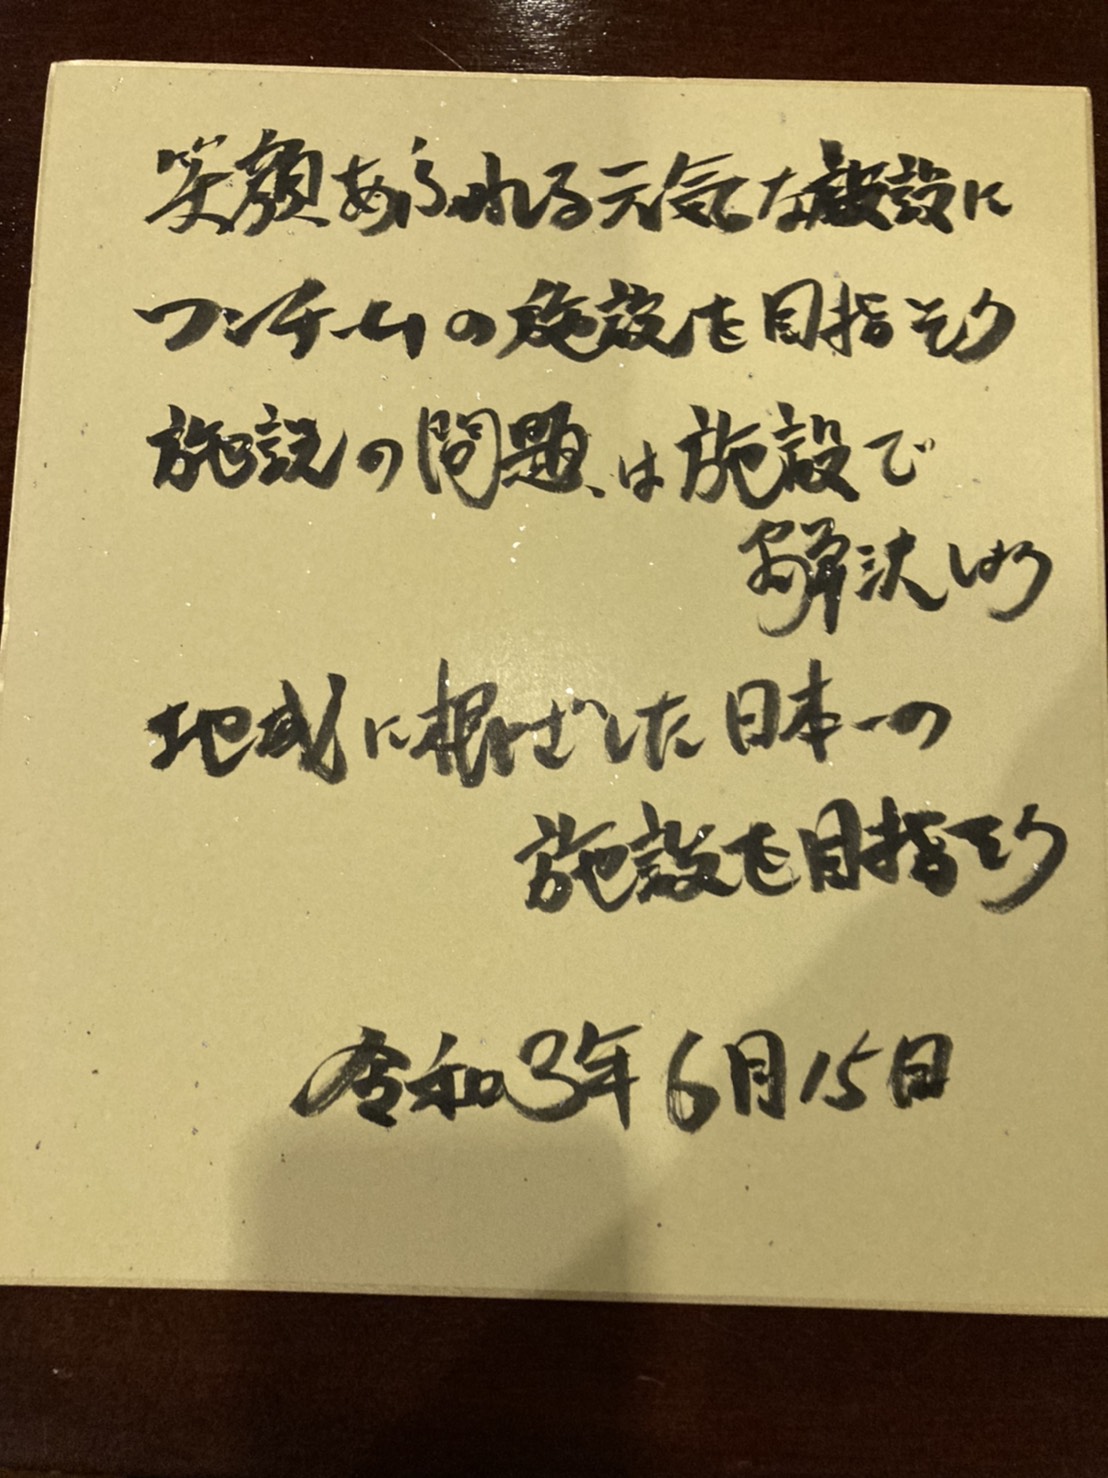 笑顔あふれる元気な施設に
ワンチームの施設を目指そう
施設の問題は施設で
解決しよう
地域に根ざした日本一の
施設を目指そう
令和3年6月15日